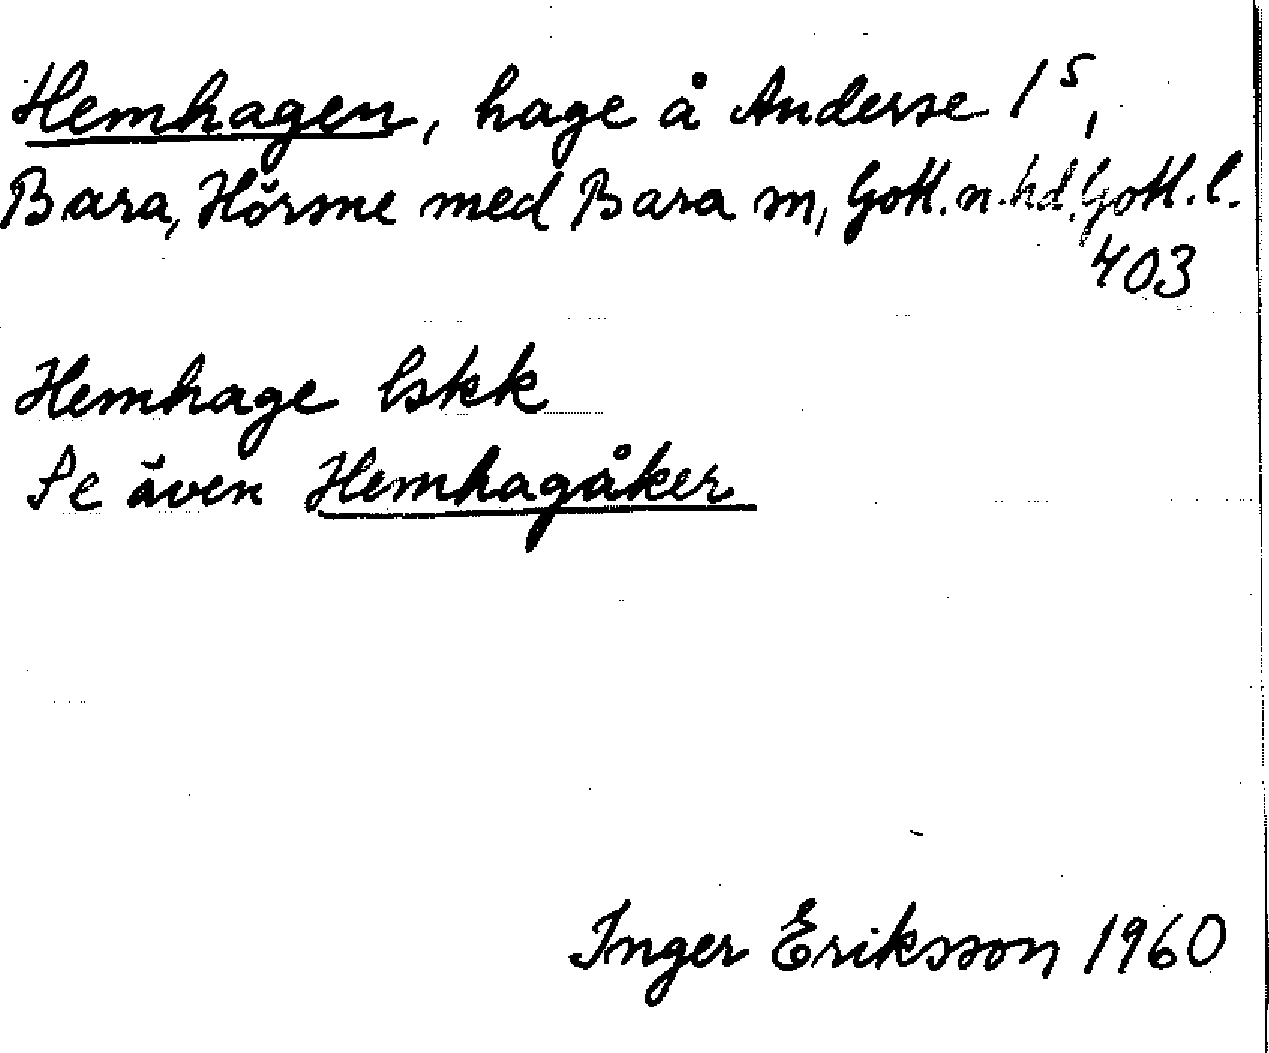 Hemhagen, hage å Anderse 1⁵,
Bara, Hörsne med Bara sn, Gotl. n. hd, Gotl. l.
403
Hemhage lskk
Se även Hemhagåker
Inger Eriksson 1960